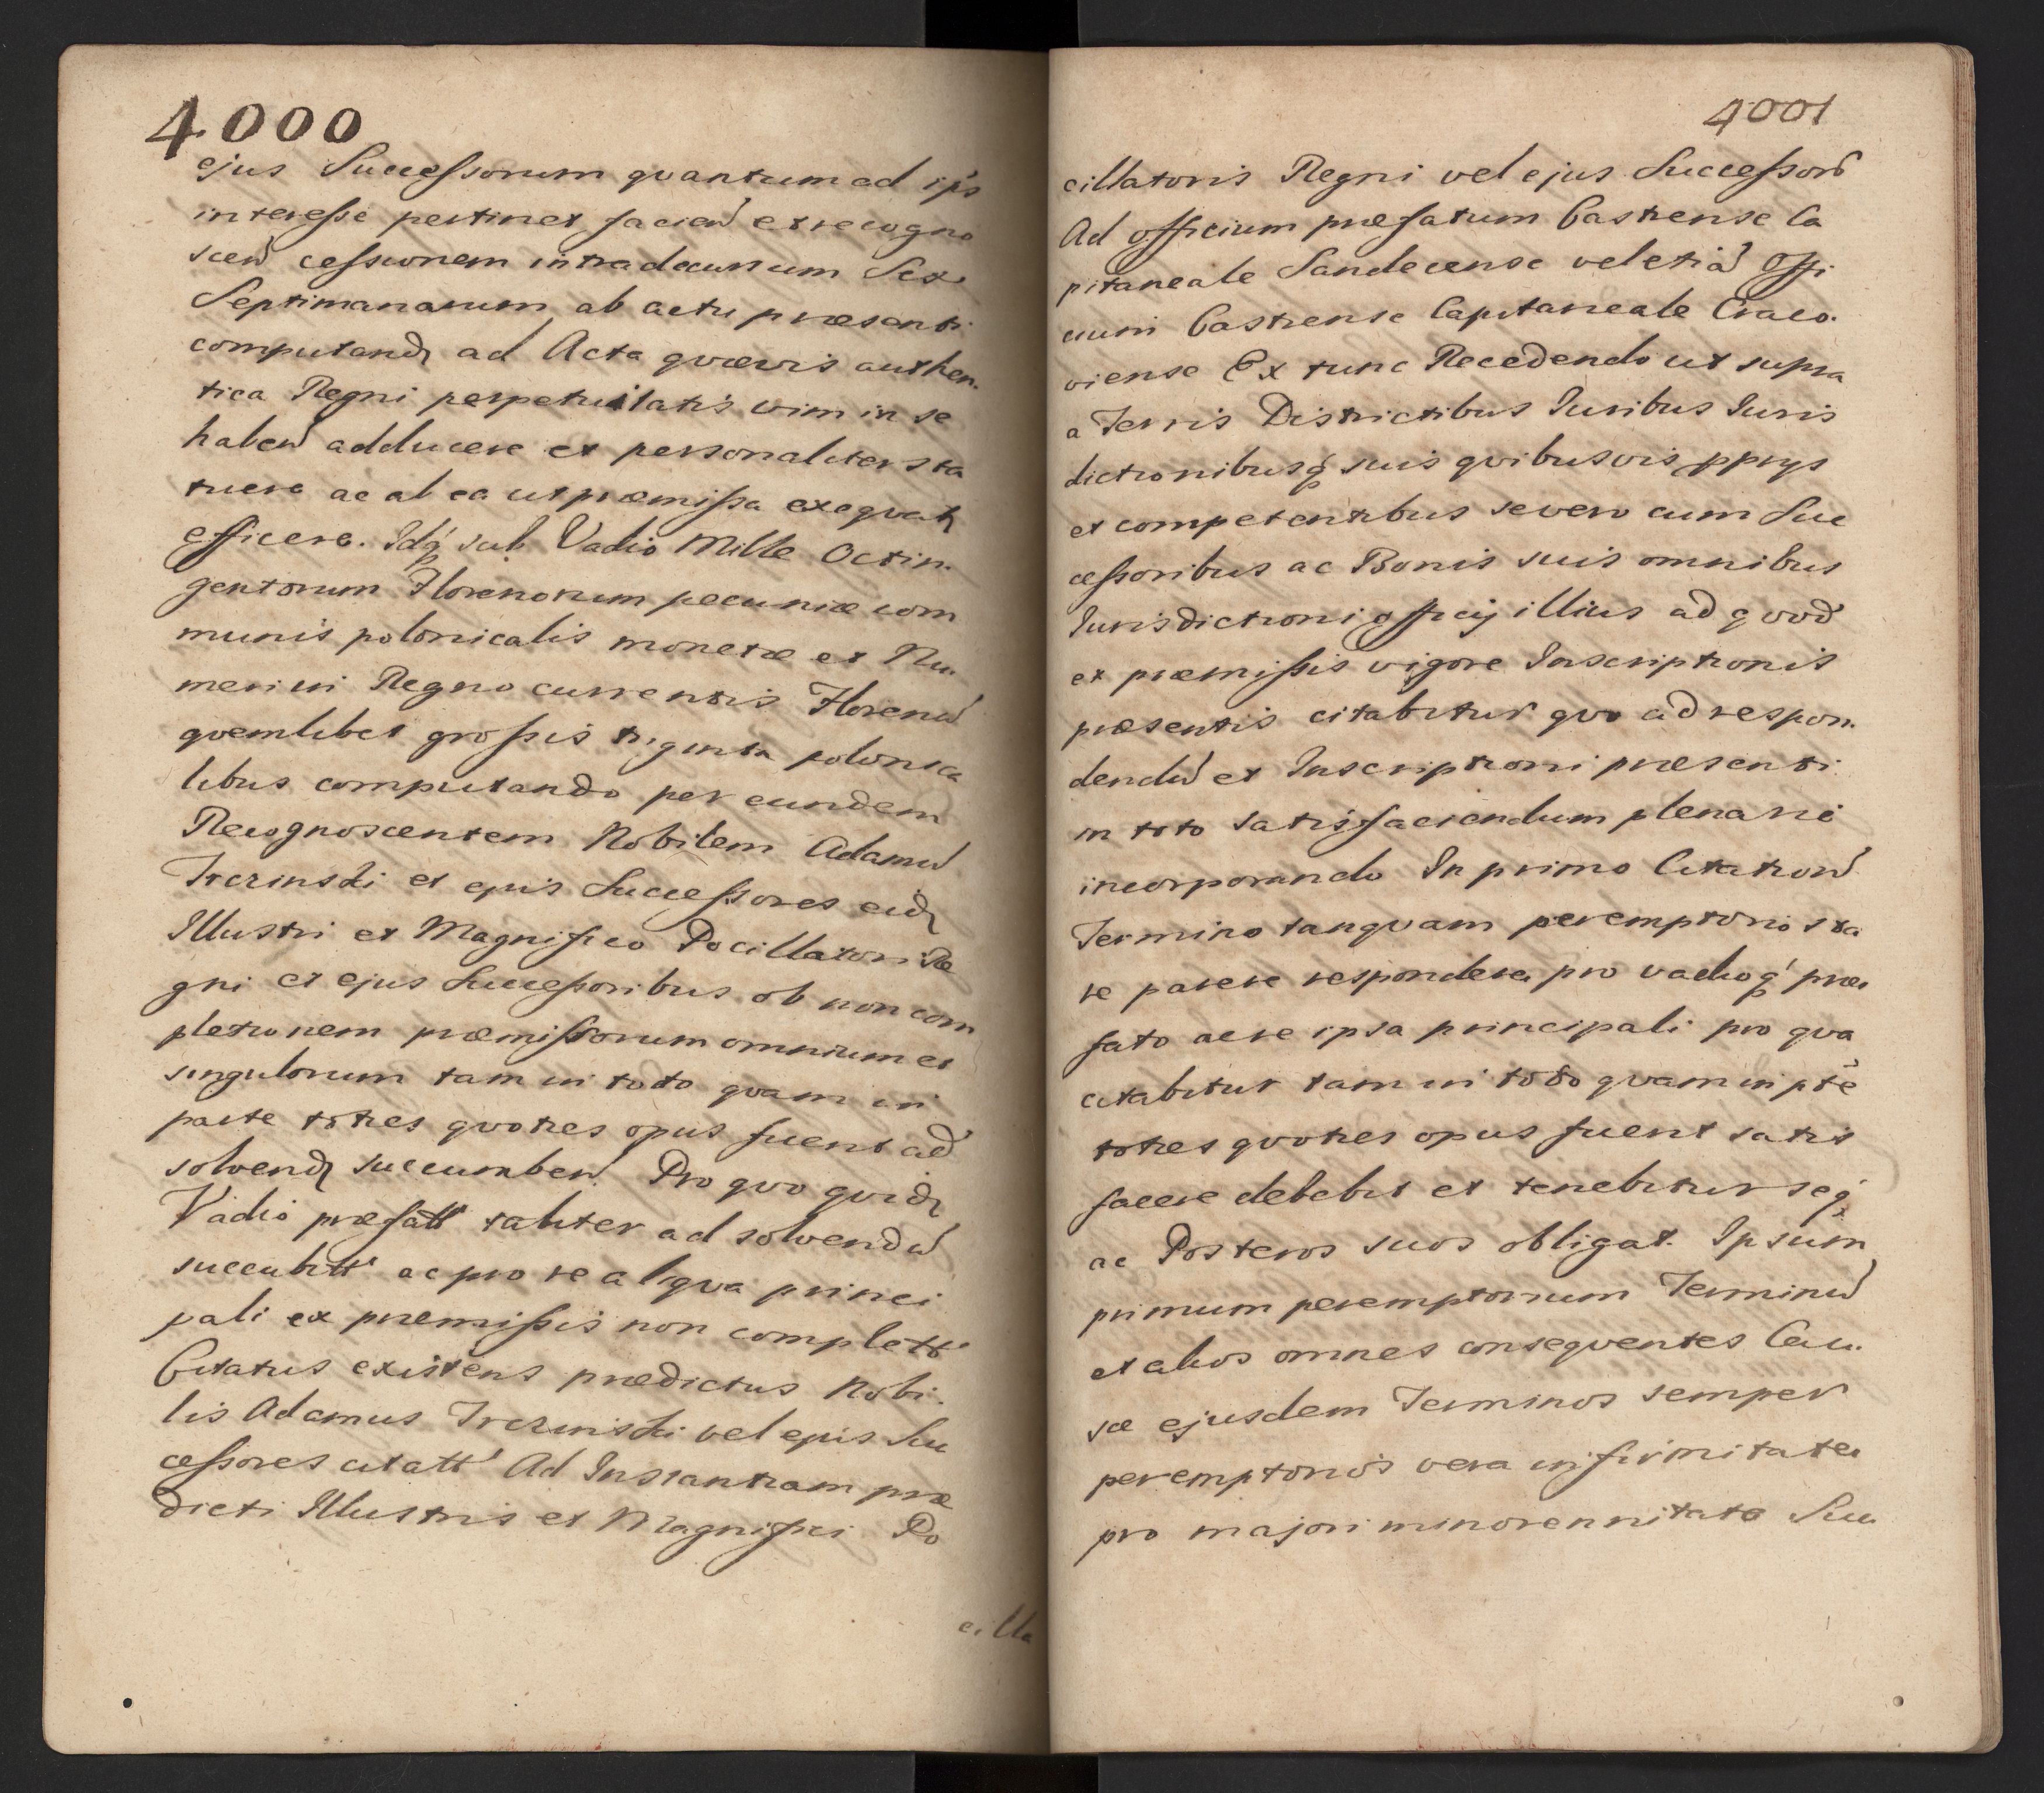 4000
ejus Successorum qvantum ad ips
interesse pertinet facien et recogno
scen cessionem intra decursum Sex
Septimanarum ab actu præsenti
computand ad Acta qvævis authen
tica Regni perpetuitatis vim in se
haben adducere et personaliter sta
tuere ac ab ea ut præmissa exeqvat
efficere. Idq sub Vadio Mille Octin
gentorum Florenorum pecuniæ com
munis polonicalis monetæ et Nu
meri in Regno currentis Florenu
qvemlibet grossis triginta polonica
libus computando per eundem
Recognoscentem Nobilem Adamu
Trzinski et ejus Successores eid
Illustri et Magnifico Pocillatori Re
gni et ejus Successoribus ob non com
pletionem præmissorum omnium et
singulorum tam in toto qvam in
parte toties qvoties opus fuerit ad
solvend succumben. Pro qvo qvid
Vadio præfatt taliter ad solvendu
succubitt ac pro re aliqva princi
pali ex præmissis non complett
Citatus existens prædictus Nobi.
lis Adamus Trzinski vel ejus Suc
cessores citatt Ad Instantiam præ
dicti Illustris et Magnifici Po
cilla
4001
cillatoris Regni vel ejus Successoru
Ad officium præfatum Castrense Ca
pitaneale Sandecense vel etia Offi
cium Castrense Capitaneale Craco.
viense Ex tunc Recedendo ut supra
a Terris Districtibus Iuribus Iuris
dictionibusq suis qvibusvis pprys
et competentibus se vero cum Suc
cessoribus ac Bonis suis omnibus
Iurisdictioni officij illius ad qvod
ex præmissis vigore Inscriptionis
præsentis citabitur qvo ad respon.
dendu et Inscriptioni præsenti
in toto satisfaciendum plenarie
incorporando In primo Citationu
Termino tanqvam peremptorio sta
re parere respondere pro vadioq præ
fato ac re ipsa principali pro qva
citabitur tam in toto qvam in pte
toties qvoties opus fuerit satis
facere debebit et tenebitur seq
ac Posteros suos obligat. Ipsum
primum peremptorium Terminu
et alios omnes conseqventes Cau.
sæ ejusdem Terminos semper
peremptorios vera infirmitate
pro majori minorennitate Suc